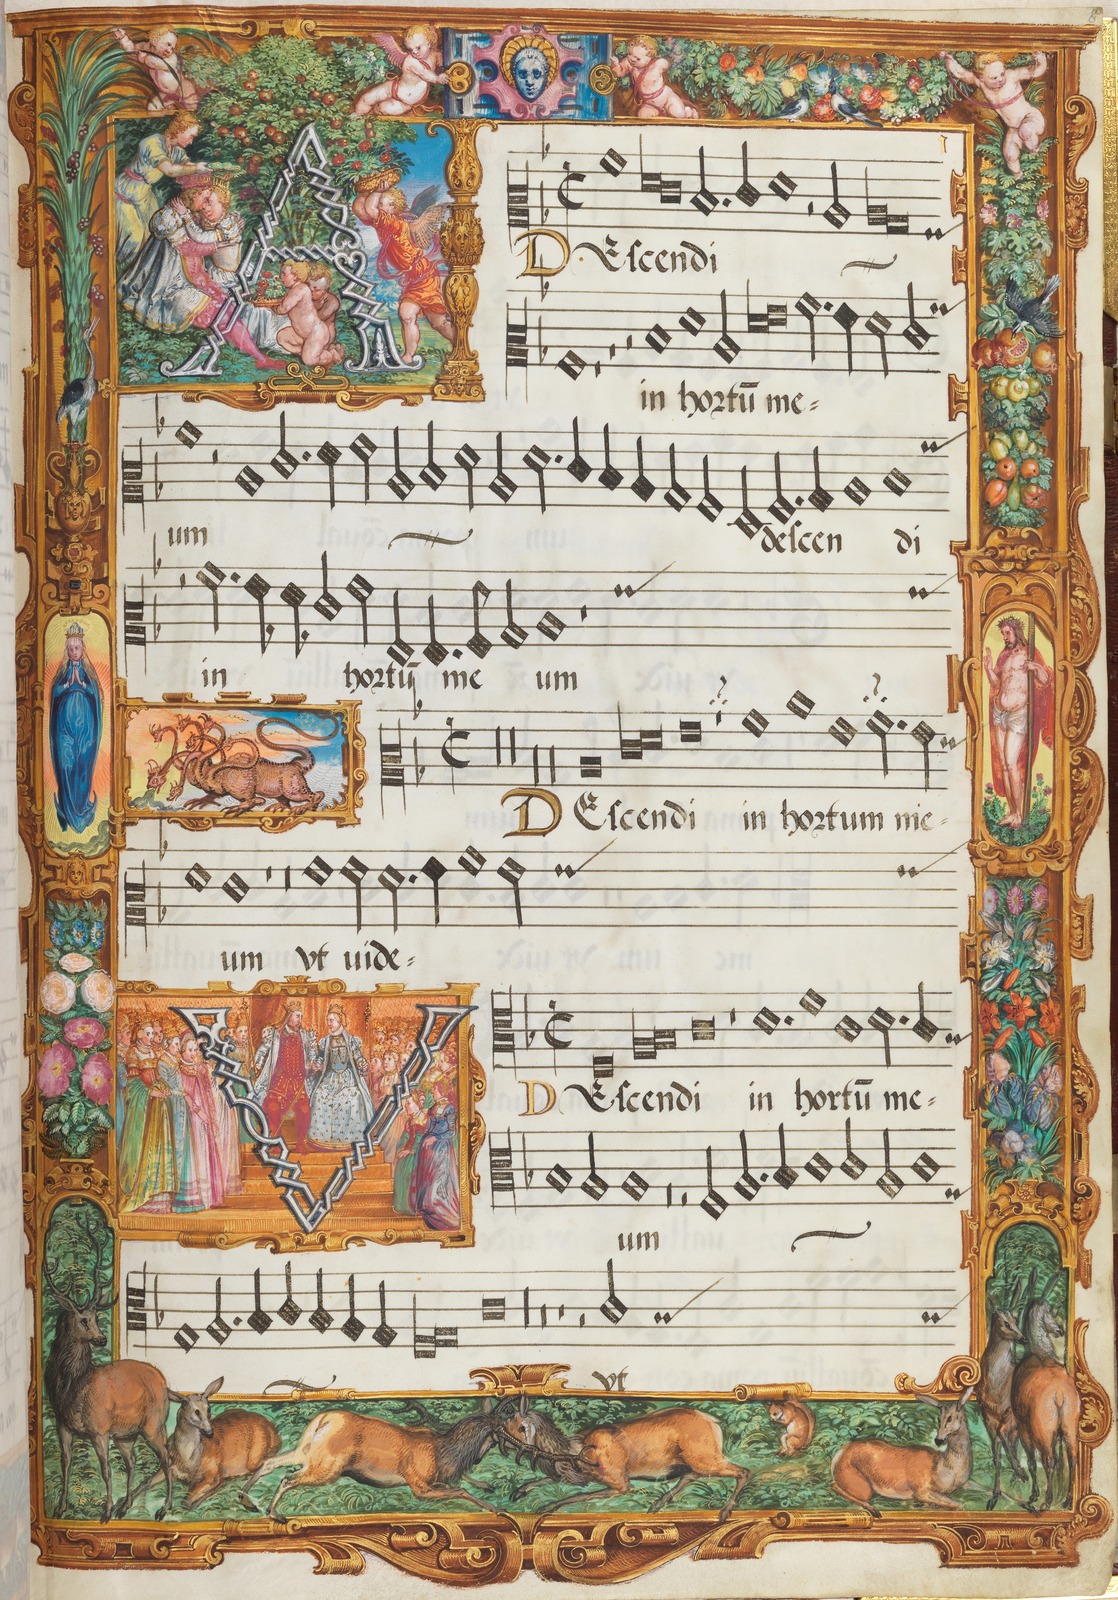 A
DEscendi
in hortū me-
um descendi
in hortū me um
DEscendi in hortum me-
um vt uide-
V
DEscendi in hortū me-
um
vt